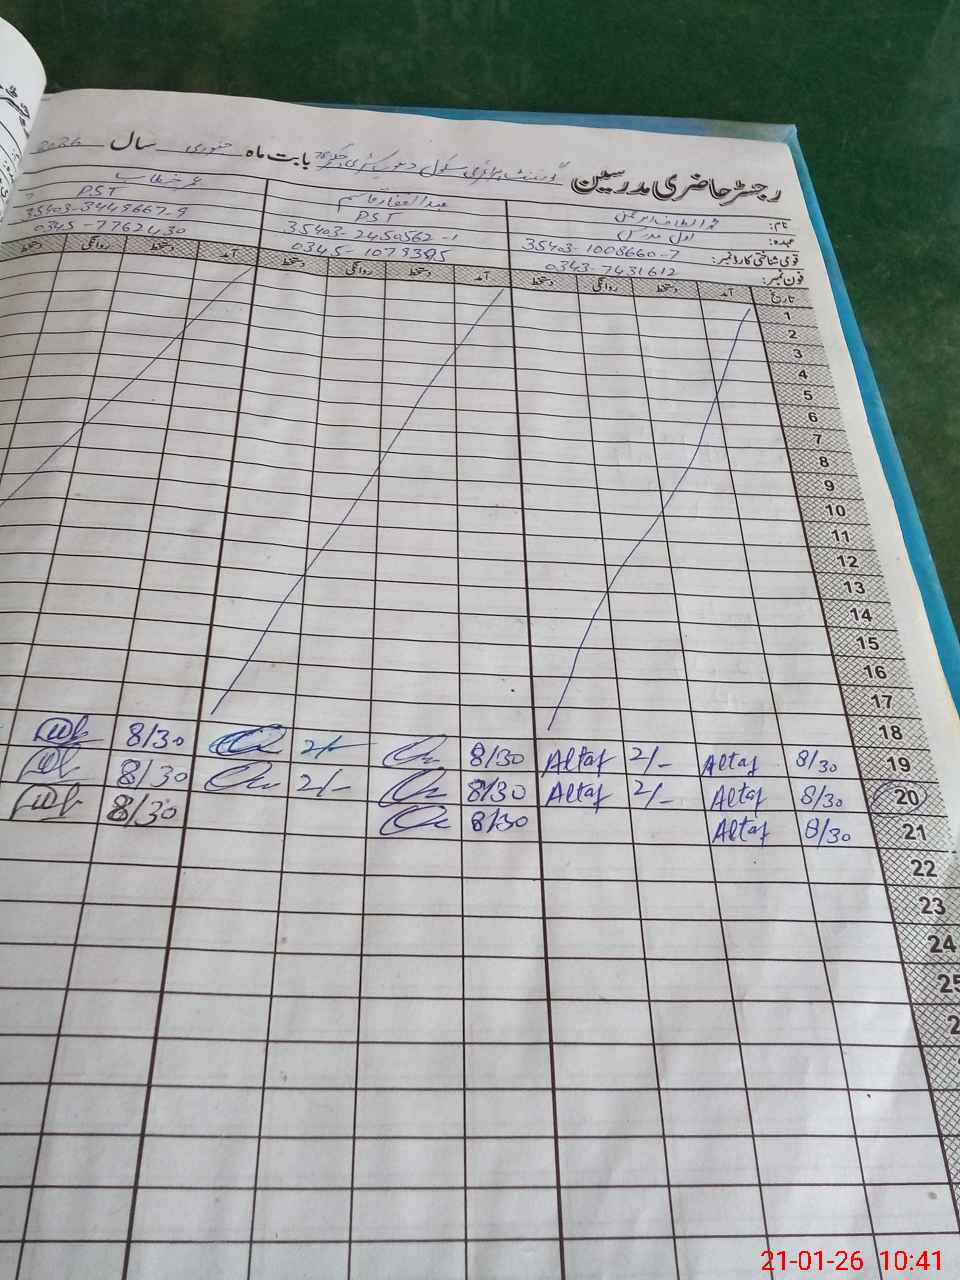 رجسٹر حاضری مدرسین گورنمنٹ پرائمری سکول بابت ماہ جنوری سال 2026
نام: محمد الطاف الرحمن
عبدالغفار قاسم
عمر خطاب
عہدہ: اول مدرس
PST
PST
قومی شناختی کارڈ نمبر: 35403-1008660-7
35403-2450562-1
35403-3449667-9
فون نمبر: 0343-7431612
0345-1079385
0345-7762430
تاریخ آمد دستخط روانگی دستخط آمد دستخط روانگی دستخط آمد دستخط روانگی دستخط
1
2
3
4
5
6
7
8
9
10
11
12
13
14
15
16
17
18
19 8/30 Altaf 2/- Altaf 8/30 2/- 8/30
20 8/30 Altaf 2/- Altaf 8/30 2/- 8/30
21 8/30 Altaf 8/30 8/30
22
23
24
25
21-01-26 10:41